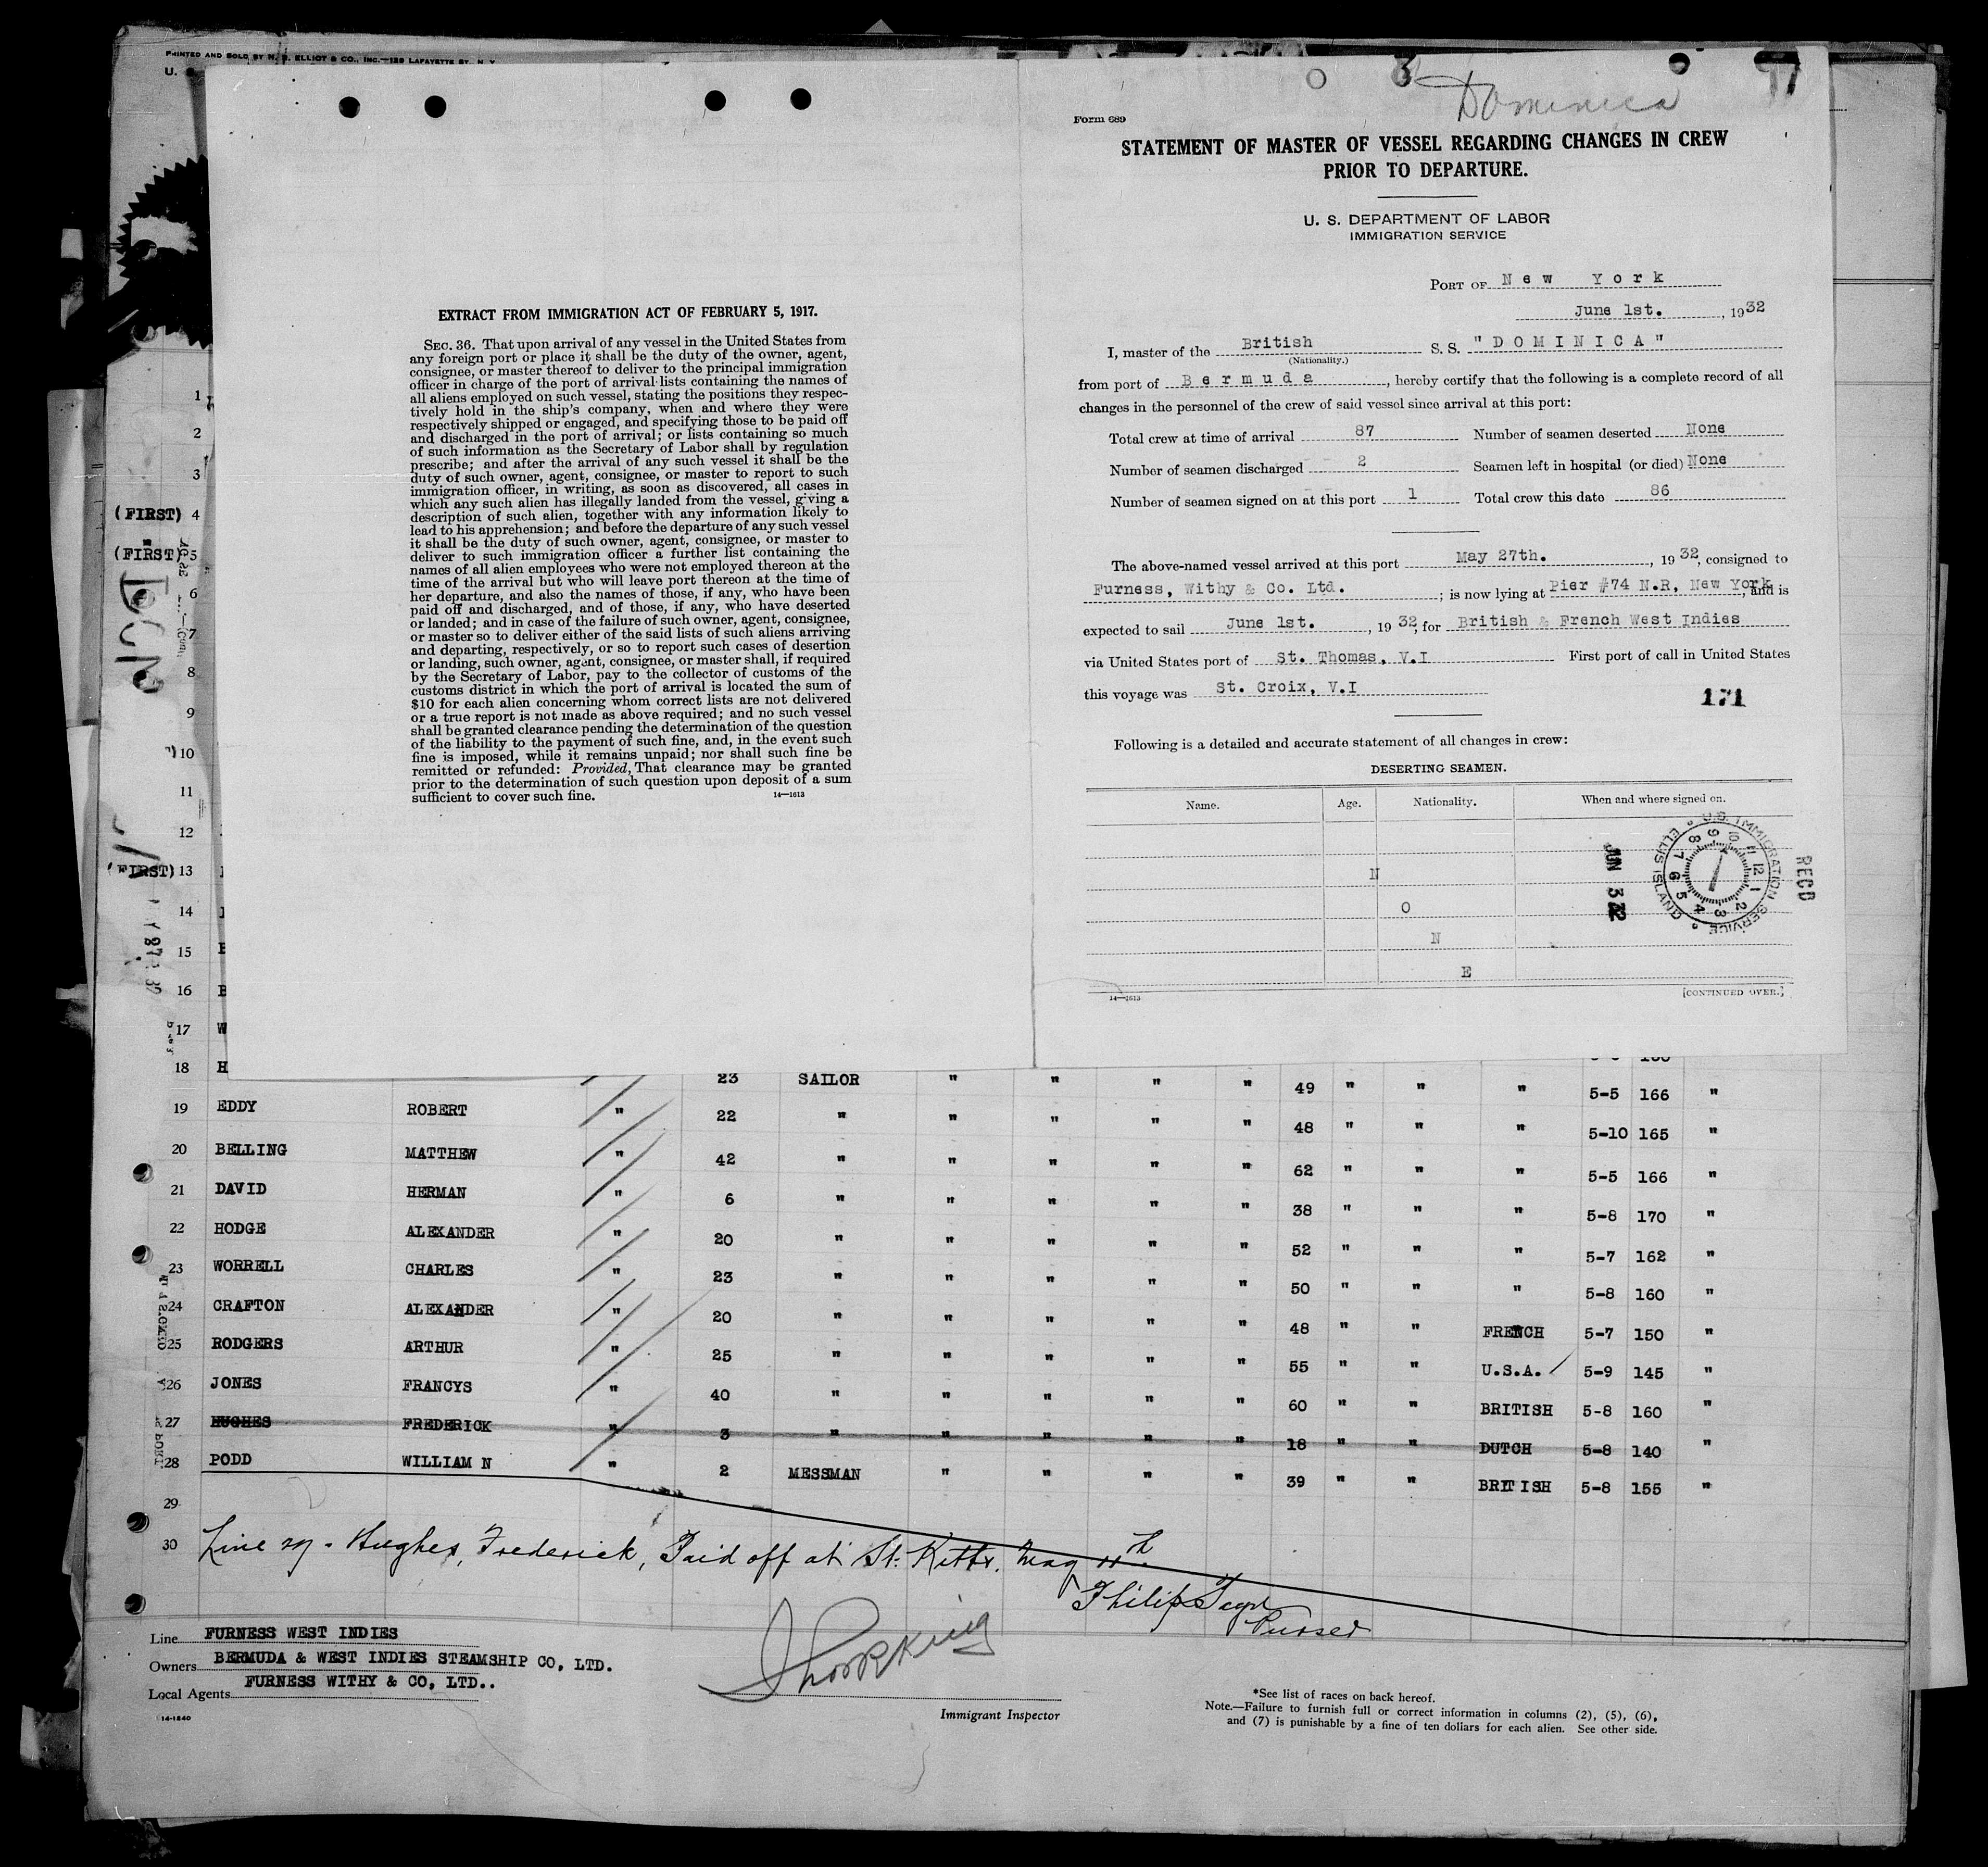 PRINTED AND SOLD BY H. B. ELLIOT & CO., INC.—129 LAFAYETTE ST., N. Y.
U. S.
EXTRACT FROM IMMIGRATION ACT OF FEBRUARY 5, 1917.
SEC. 36. That upon arrival of any vessel in the United States from
any foreign port or place it shall be the duty of the owner, agent,
consignee, or master thereof to deliver to the principal immigration
officer in charge of the port of arrival lists containing the names of
all aliens employed on such vessel, stating the positions they respec-
tively hold in the ship's company, when and where they were
respectively shipped or engaged, and specifying those to be paid off
and discharged in the port of arrival; or lists containing so much
of such information as the Secretary of Labor shall by regulation
prescribe; and after the arrival of any such vessel it shall be the
duty of such owner, agent, consignee, or master to report to such
immigration officer, in writing, as soon as discovered, all cases in
which any such alien has illegally landed from the vessel, giving a
description of such alien, together with any information likely to
lead to his apprehension; and before the departure of any such vessel
it shall be the duty of such owner, agent, consignee, or master to
deliver to such immigration officer a further list containing the
names of all alien employees who were not employed thereon at the
time of the arrival but who will leave port thereon at the time of
her departure, and also the names of those, if any, who have been
paid off and discharged, and of those, if any, who have deserted
or landed; and in case of the failure of such owner, agent, consignee,
or master so to deliver either of the said lists of such aliens arriving
and departing, respectively, or so to report such cases of desertion
or landing, such owner, agent, consignee, or master shall, if required
by the Secretary of Labor, pay to the collector of customs of the
customs district in which the port of arrival is located the sum of
$10 for each alien concerning whom correct lists are not delivered
or a true report is not made as above required; and no such vessel
shall be granted clearance pending the determination of the question
of the liability to the payment of such fine, and, in the event such
fine is imposed, while it remains unpaid; nor shall such fine be
remitted or refunded: Provided, That clearance may be granted
prior to the determination of such question upon deposit of a sum
sufficient to cover such fine.
14—1613
3
Dominica
Form 689
STATEMENT OF MASTER OF VESSEL REGARDING CHANGES IN CREW
PRIOR TO DEPARTURE.
U. S. DEPARTMENT OF LABOR
IMMIGRATION SERVICE
PORT OF New York
June 1st., 1932
I, master of the British S. S. "DOMINICA"
(Nationality.)
from port of Bermuda, hereby certify that the following is a complete record of all
changes in the personnel of the crew of said vessel since arrival at this port:
Total crew at time of arrival 87 Number of seamen deserted None
Number of seamen discharged 2 Seamen left in hospital (or died) None
Number of seamen signed on at this port 1 Total crew this date 86
The above-named vessel arrived at this port May 27th., 1932, consigned to
Furness, Withy & Co. Ltd.; is now lying at Pier #74 N.R, New York, and is
expected to sail June 1st., 1932, for British & French West Indies
via United States port of St. Thomas, V.I First port of call in United States
this voyage was St. Croix, V.I
171
Following is a detailed and accurate statement of all changes in crew:
DESERTING SEAMEN.
Name. Age. Nationality. When and where signed on.
N
O
N
E
JUN 3 32
U.S. IMMIGRATION SERVICE ELLIS ISLAND
RECD
14—1613
[CONTINUED OVER.]
1
2
3
(FIRST) 4
(FIRST) 5
6
7
8
9
10
11
12
(FIRST) 13
14
15
16 B
17 W
18 H 23 SAILOR " " " " 49 " " " 5-5 166 "
19 EDDY ROBERT " 22 " " " " " 48 " " " 5-10 165 "
20 BELLING MATTHEW " 42 " " " " " 62 " " " 5-5 166 "
21 DAVID HERMAN " 6 " " " " " 38 " " " 5-8 170 "
22 HODGE ALEXANDER " 20 " " " " " 52 " " " 5-7 162 "
23 WORRELL CHARLES " 23 " " " " " 50 " " " 5-8 160 "
24 CRAFTON ALEXANDER " 20 " " " " " 48 " " FRENCH 5-7 150 "
25 RODGERS ARTHUR " 25 " " " " " 55 " " U.S.A. 5-9 145 "
26 JONES FRANCYS " 40 " " " " " 60 " " BRITISH 5-8 160 "
27 HUGHES FREDERICK " 3 " " " " " 18 " " DUTCH 5-8 140 "
28 PODD WILLIAM N " 2 MESSMAN " " " " 39 " " BRITISH 5-8 155 "
29
30 Line 27 - Hughes, Frederick, Paid off at St. Kitts. May 11th
Philip
Purser
Line FURNESS WEST INDIES
Owners BERMUDA & WEST INDIES STEAMSHIP CO, LTD.
Local Agents FURNESS WITHY & CO, LTD..
14-1240
Immigrant Inspector
*See list of races on back hereof.
Note.—Failure to furnish full or correct information in columns (2), (5), (6),
and (7) is punishable by a fine of ten dollars for each alien. See other side.